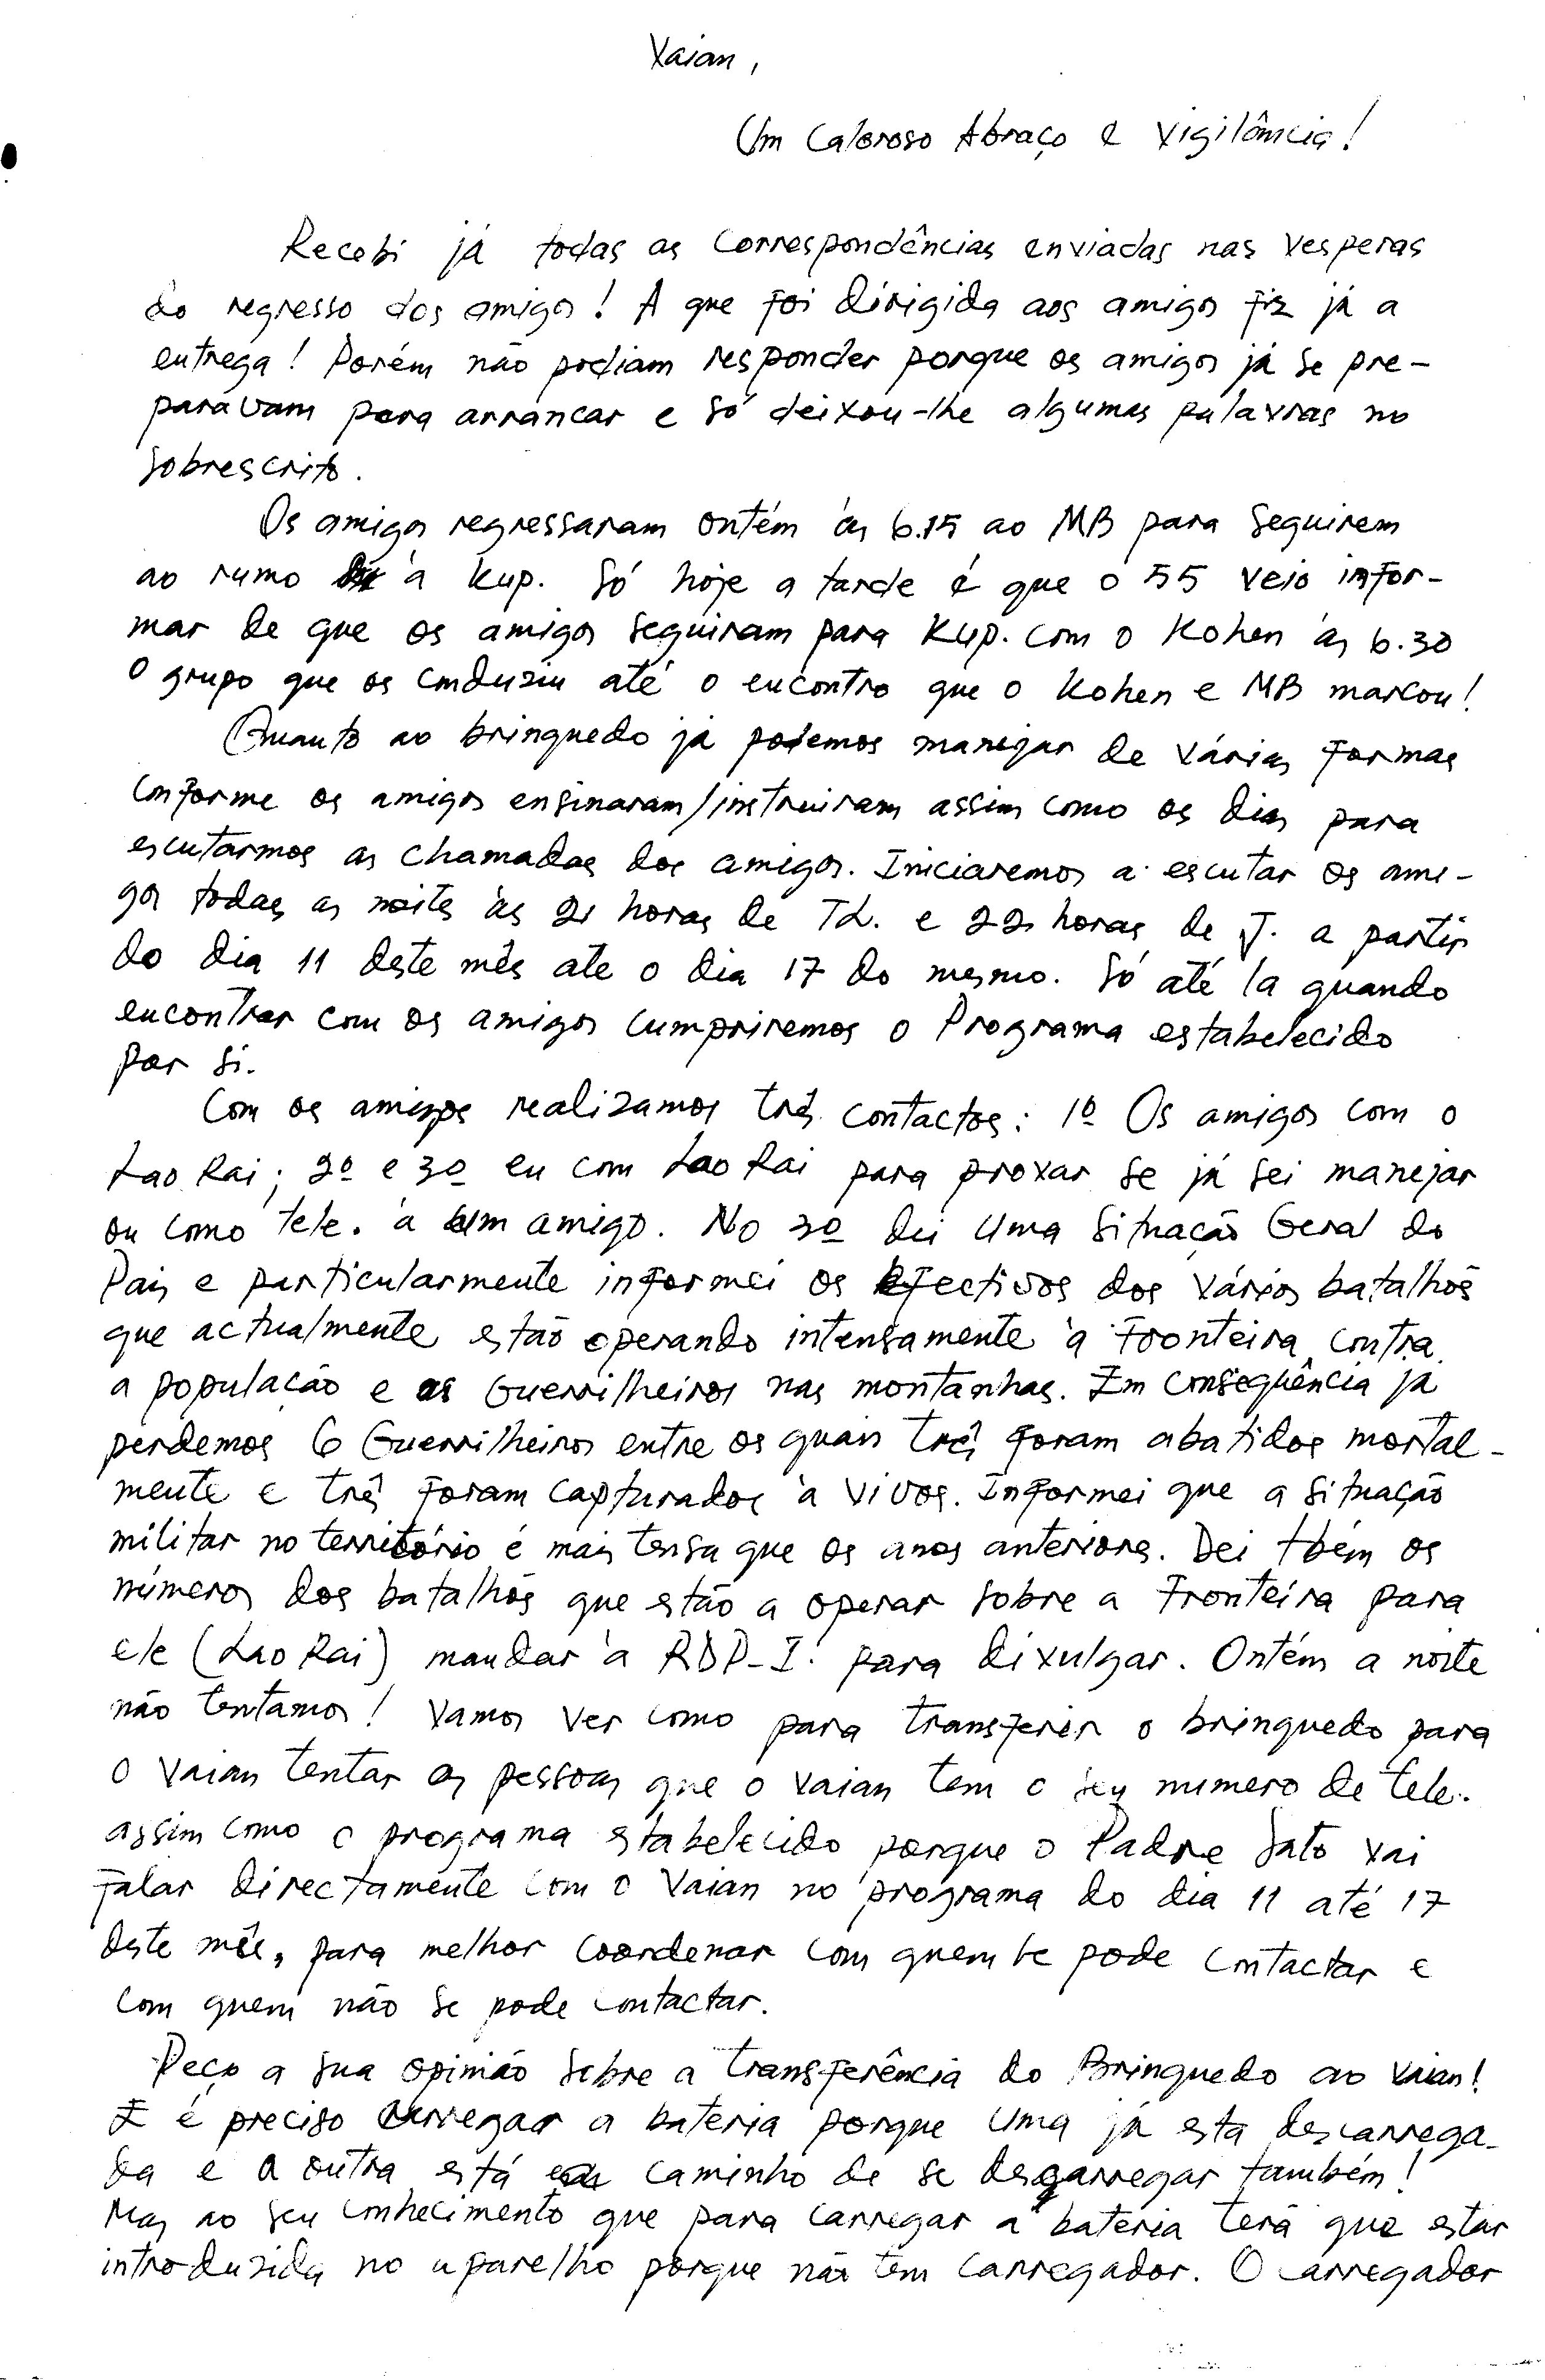 Vaian,
Um Caloroso Abraço e Vigilância!
Recebi já todas as Correspondências enviadas nas vesperas
do regresso dos amigos! A que foi dirigida aos amigos fiz já a
entrega! Porém não podiam responder porque os amigos já se pre-
paravam para arrancar e só deixou-lhe algumas palavras no
sobrescrito.
Os amigos regressaram ontém às 6.15 ao MB para seguirem
ao rumo à Kup. Só hoje a tarde é que o 55 veio infor-
mar de que os amigos seguiram para Kup. com o Kohen às 6.30
O grupo que os conduziu até o encontro que o Kohen e MB marcou!
Quanto ao brinquedo já podemos manejar de várias formas
conforme os amigos ensinaram/instruiram assim como os dias para
escutarmos as chamadas dos amigos. Iniciaremos a escutar os ami-
gos todas as noites às 21 horas de TL. e 22 horas de J. a partir
do dia 11 deste mês ate o dia 17 do mesmo. Só até la quando
encontrar com os amigos cumpriremos o Programa estabelecido
por si.
Com os amigos realizamos três contactos: 1º Os amigos com o
Lao Rai; 2º e 3º eu com Lao Rai para provar se já sei manejar
ou como tele. a um amigo. No 3º dei uma situação Geral do
Pais e particularmente informei os Efectivos dos vários batalhõs
que actualmente estão operando intensamente à Fronteira contra
a população e as Guerrilheiros nas montanhas. Em consequência já
perdemos 6 Guerrilheiros entre os quais três foram abatidos mortal-
mente e três foram capturados à vivos. Informei que a situação
militar no território é mais tensa que os anos anteriores. Dei tbém os
números dos batalhõs que estão a operar sobre a Fronteira para
ele (Lao Rai) mandar à RDP-I. para divulgar. Ontém a noite
não tentamos! Vamos ver como para transferir o brinquedo para
o Vaian tentar as pessoas que o Vaian tem o seu número de tele.
assim como o programa estabelecido porque o Padre Sato vai
falar directamente com o Vaian no programa do dia 11 até 17
deste mês, para melhor coordenar com quem se pode contactar e
com quem não se pode contactar.
Peço a sua opinião sobre a transferência do Brinquedo ao Vaian!
E é preciso carregar a bateria porque uma já esta descarrega-
da e a outra está caminho de se descarregar também!
Mas ao seu conhecimento que para carregar a bateria terá que estar
introduzida no aparelho porque não tem carregador. O carregador